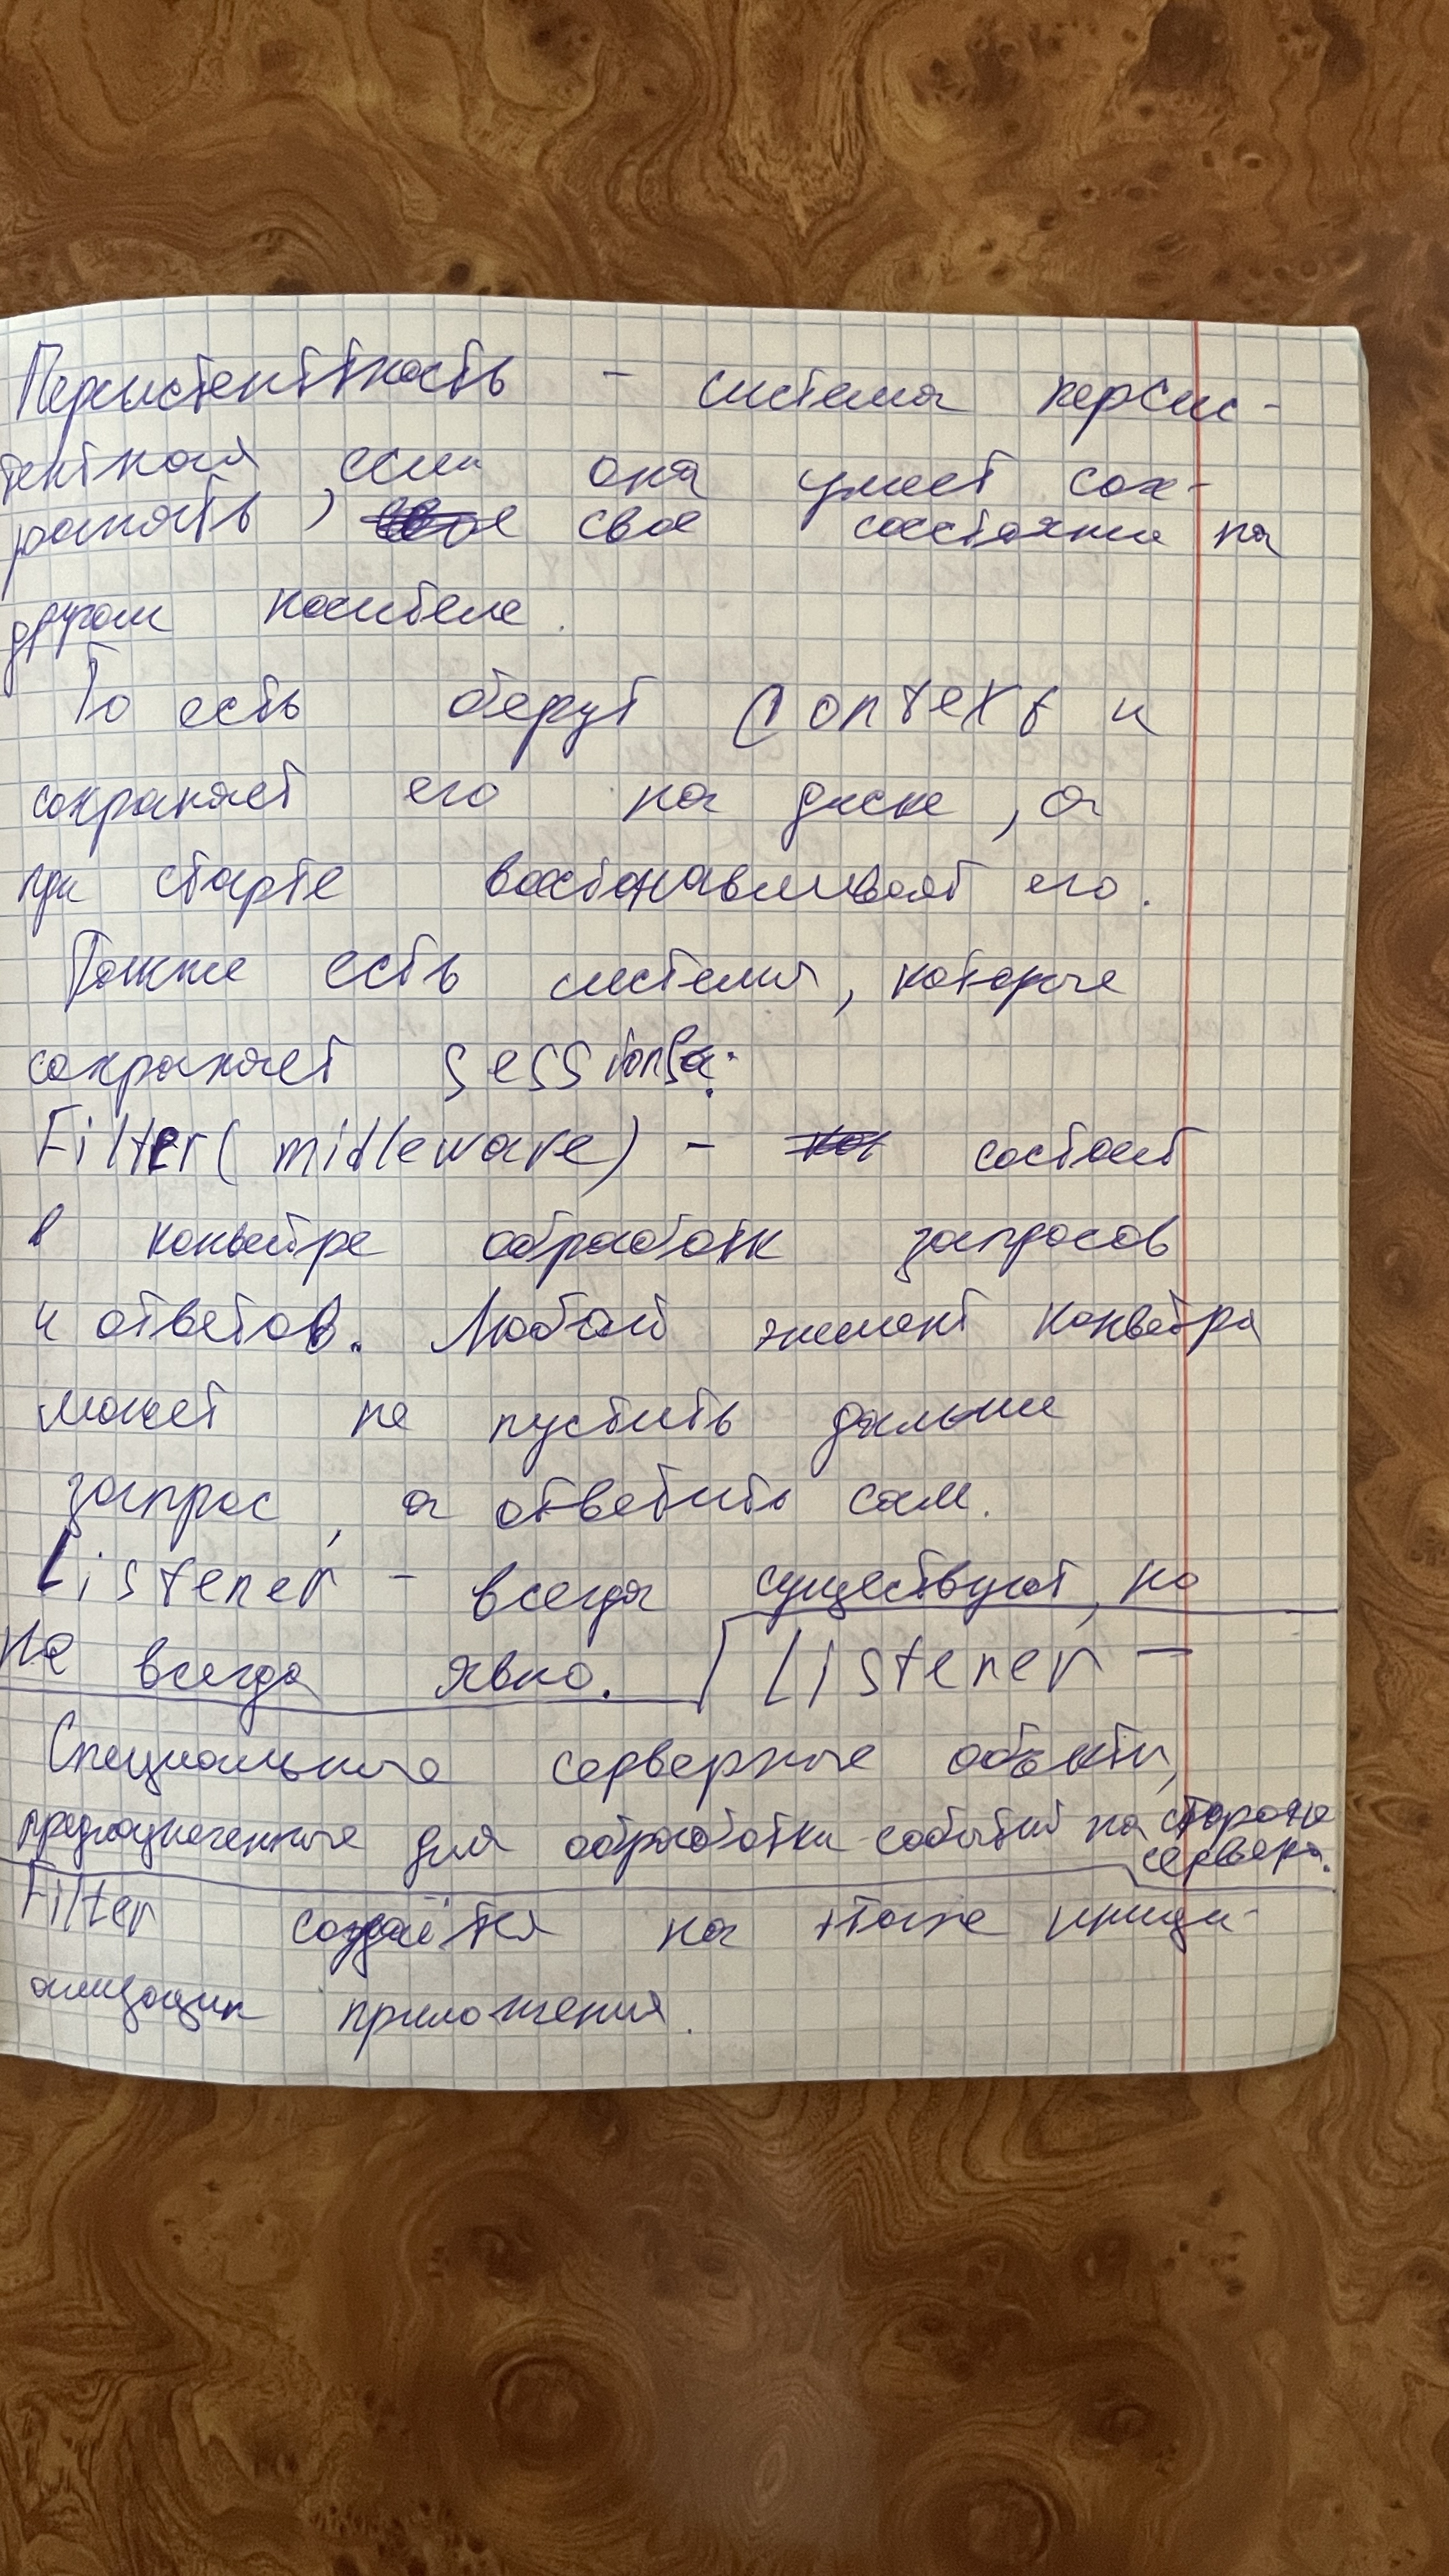 Персистентность - система персис-
тентная если она умеет сох-
ранять, свое состояние на
другом носителе.
То есть берут Context и
сохраняет его на диске, а
при старте восстонавливает его.
Также есть системы, которые
сохраняет
Filter (midleware) - состоит
в конвейре обработк запросов
и ответов. Любой элемент конвейра
может не пустить дальше
запрос, а ответить сам.
Listener - всегда существуют, но
не всегда явно. Listener -
Специальные серверные объекты,
предназначенные для обработки событий на стороне
сервера.
Filter создаётся на этапе иници-
ализации приложения.